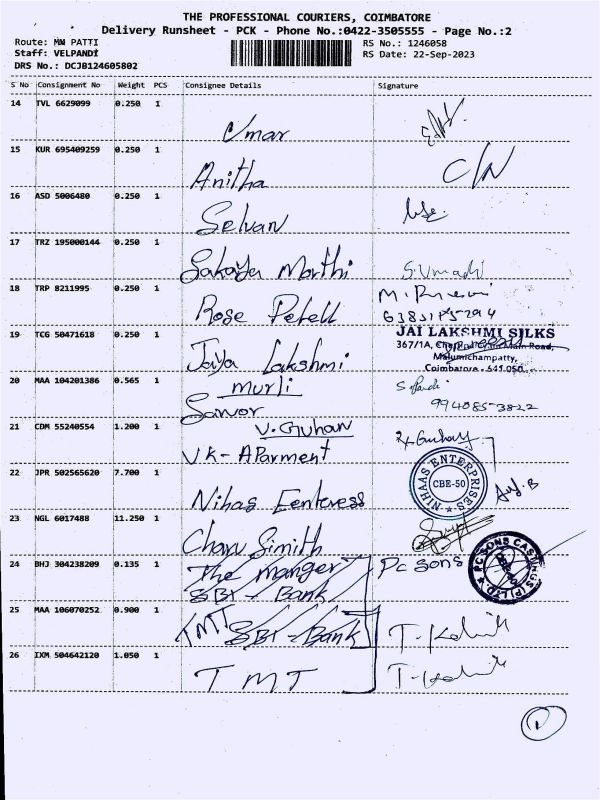 THE PROFESSIONAL COURIERS, COIMBATORE
Delivery Runsheet - PCK - Phone No.:0422-3505555 - Page No.:2
Route: MW PATTI
RS No.: 1246058
Staff: VELPANDI
RS Date: 22-Sep-2023
DRS No.: DCJB124605802
S No Consignment No Weight PCS Consignee Details Signature
14 TVL 6629099 0.250 1
Umar
15 KUR 695409259 0.250 1
Anitha
C/N
16 ASD 5006480 0.250 1
Selvan
17 TRZ 195000144 0.250 1
Sakaya Morthi S.Umadi
18 TRP 8211995 0.250 1
Rose Petell
19 TCG 50471618 0.250 1
JAI LAKSHMI SILKS
367/1A, Main Road,
Malumichampatty,
Coimbatore - 641 050.
Jaya Lakshmi
20 MAA 104201386 0.565 1
murli
Sarvor
994085-3822
21 CDM 55240554 1.200 1
V.Guhan
VK - AParment
22 JPR 502565620 7.700 1
NIHAAS ENTERPRISES
CBE-50
Nihas Eenteress
23 NGL 6017488 11.250 1
Charu Simith
24 BHJ 304238209 0.135 1
The manger
SBI - Bank
Pc Sons
PC SONS CASTINGS (P) LTD
25 MAA 106070252 0.900 1
TMT SBI - Bank
26 IXM 504642120 1.050 1
TMT